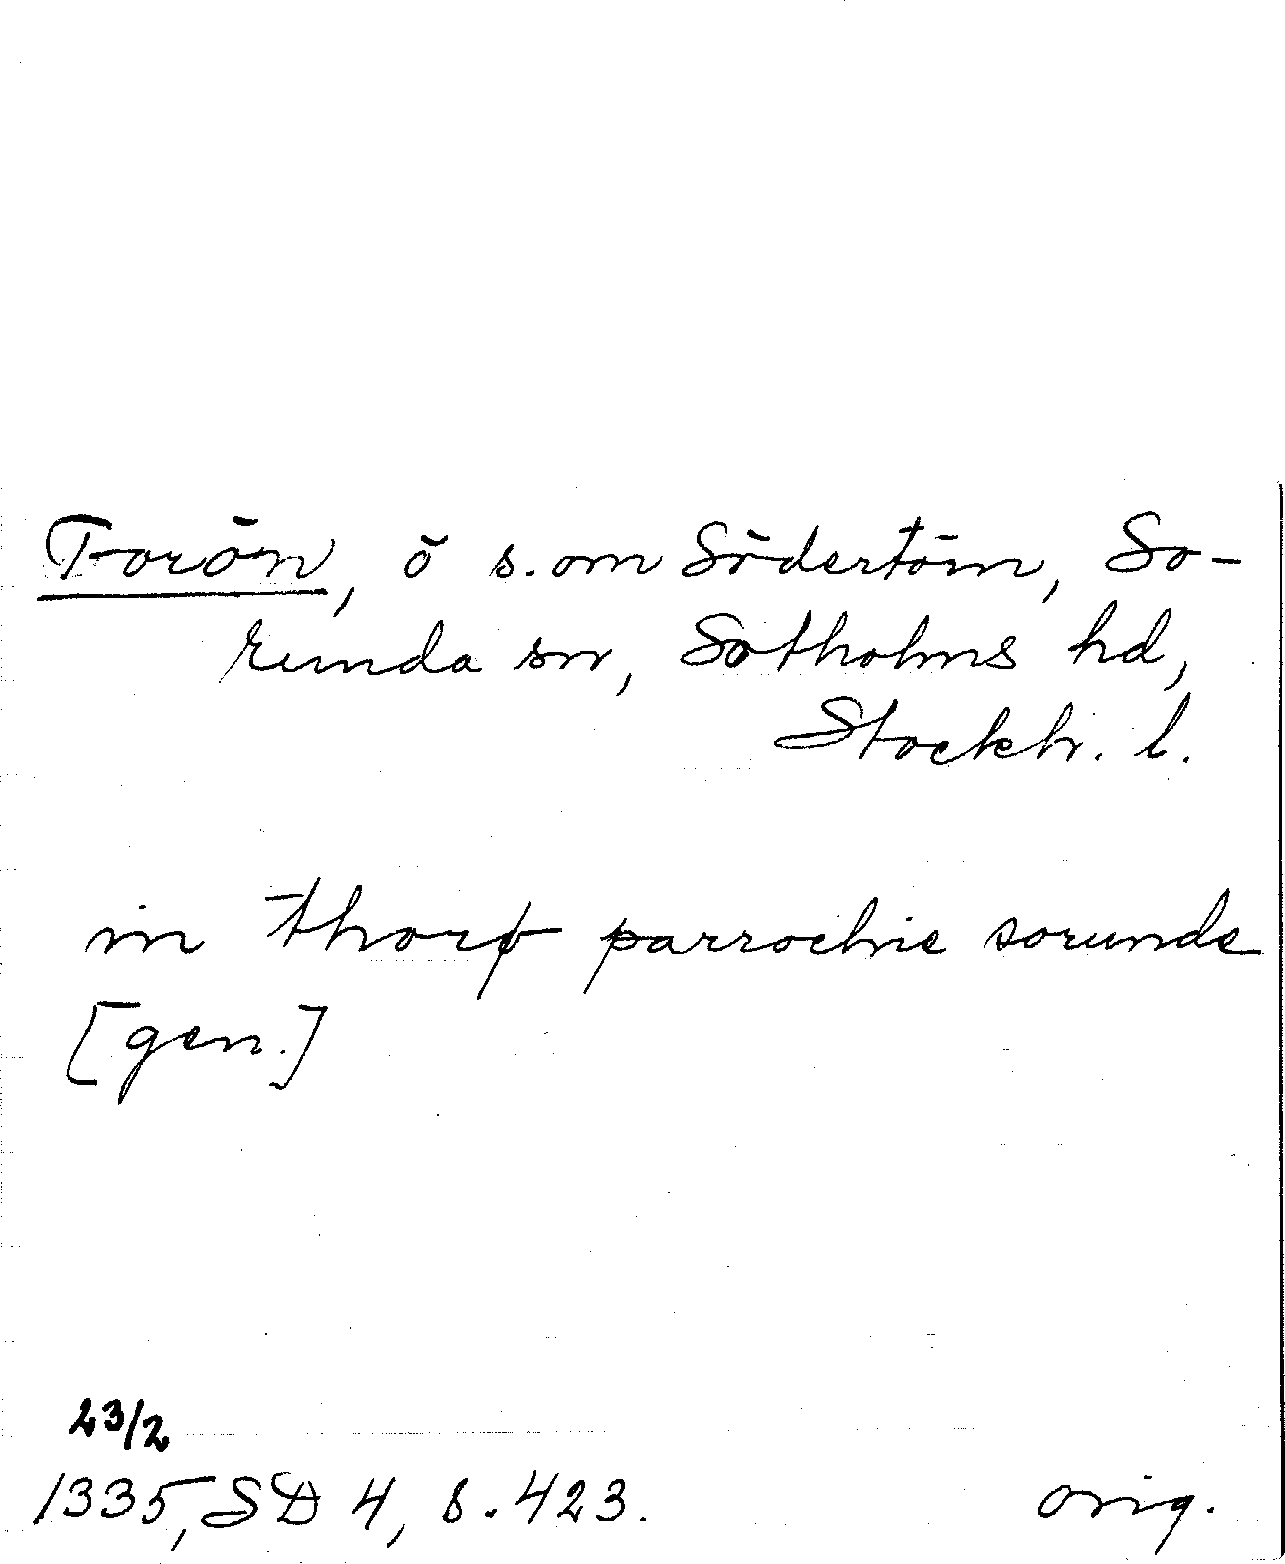 Torön, ö s. om Södertörn, So-
runda sn, Sotholms hd,
Stockh. l.
in thorp parrochie sorunde
[gen.]
23/2
1335, SD 4, s. 423. orig.